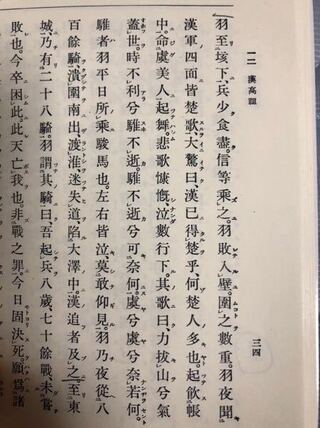 一二 漢高祖
三四
羽至垓下、兵少食盡。信等乘之。羽敗入壁。圍之數重。羽夜聞
漢軍四面皆楚歌、大驚曰、漢已得楚乎、何楚人多也。起飲帳
中。命虞美人起舞。悲歌慷慨、泣數行下。其歌曰、力拔山兮氣
蓋世。時不利兮騅不逝。騅不逝兮可奈何。虞兮虞兮奈若何。
騅者羽平日所乘駿馬也。左右皆泣、莫敢仰見。羽乃夜從八
百餘騎、潰圍南出、渡淮、迷失道、陷大澤中。漢追者及之。至東
城、乃有二十八騎。羽謂其騎曰、吾起兵八歲、七十餘戰、未嘗
敗也。今卒困此。此天亡我也。非戰之罪。今日固決死。願爲諸